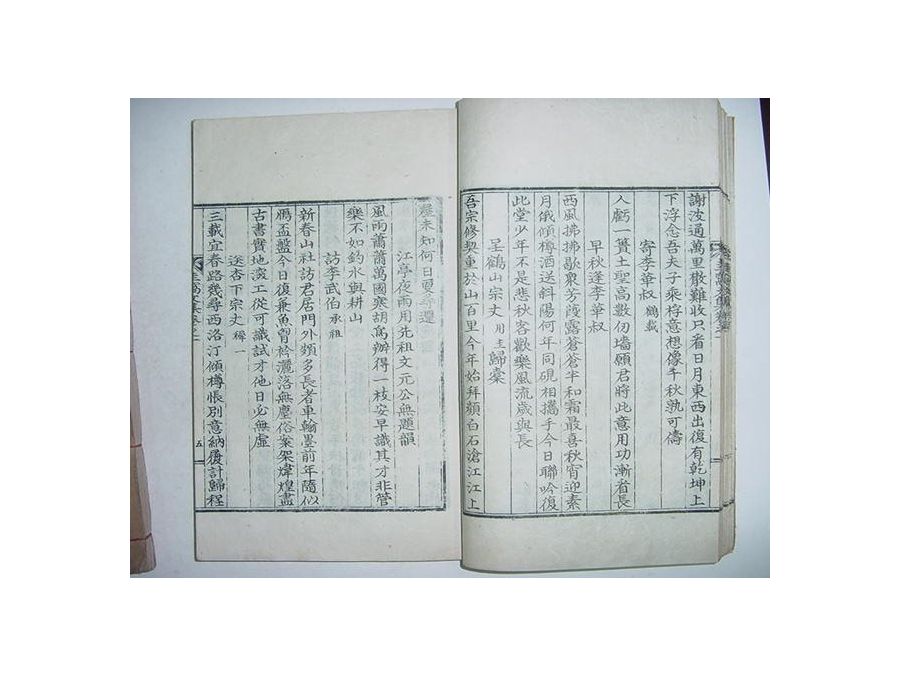 謝波通萬里散難收只看日月東西出復有乾坤上
下浮念吾夫子乘桴意想像千秋孰可儔
寄李華叔 鶴載
人虧一簣土聖高數仞墻願君將此意用功漸者長
早秋逢李華叔
西風拂拂歇衆芳葭露蒼蒼半和霜最喜秋宵迎素
月俄傾樽酒送斜陽何年同硯相攜手今日聯吟復
此堂少年不是悲秋客歡樂風流歲與長
呈鶴山宗丈 用圭 歸橐
吾宗修契重於山百里今年始拜顏白石滄江江上
屋未知何日更尋還
江亭夜雨用先祖文元公無題韻
風雨蕭蕭萬國寒胡爲辦得一枝安早識其才非管
樂不如釣水與耕山
訪李武伯 承祖
新春山社訪君居門外頻多長者車翰墨前年隨似
鴈盃盤今日復兼魚曾衿灑落無塵俗案架煒煌盡
古書實地滾工從可識試才他日必無虛
送杏下宗丈 稺一
三載宜春路幾尋西洛汀傾樽悵別意納履計歸程
五